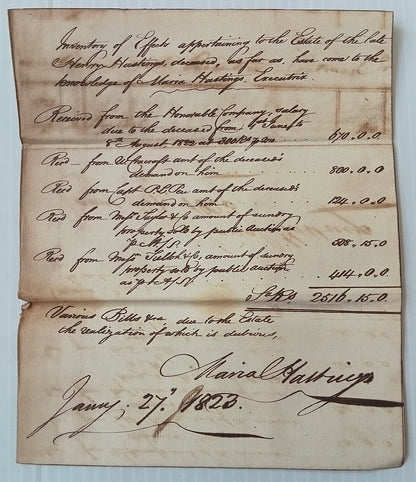 Inventory of Effects appertaining to the Estate of the late
Henry Hastings, deceased, as far as, have come to the
knowledge of Maria Hastings, Executrix.
Received from the Honorable Company, salary
due to the deceased from 1st June to
8th August 1822 at 300 670.0.0
Recd from amt of the deceased's
demand on him 800.0.0
Recd from Capt amt of the deceased's
demand on him 124.0.0
Recd from Mess Taylor & Co amount of sundry
property sold by public Auction as
508.15.0
Recd from Mess Tulloh & Co, amount of sundry
property sold by public auction
as 414.0.0
2516.15.0
Various Bills &ca due to the Estate
the realization of which is dubious,
Maria Hastings
Jany. 27. 1823.